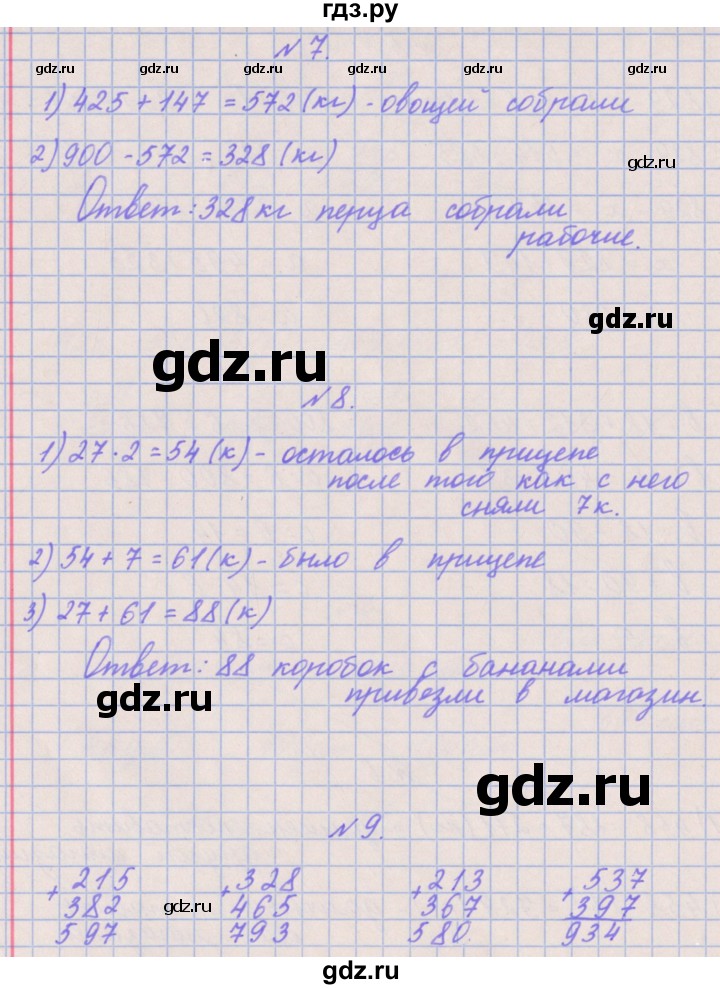 гдз.ру
№ 7.
gdz.ru gdz.ru gdz.ru gdz.ru
1) 425 + 147 = 572 (кг) - овощей собрали
2) 900 - 572 = 328 (кг)
gdz.ru
Ответ: 328 кг перца собрали
рабочие.
gdz.ru
gdz.ru
№ 8.
1) 27 · 2 = 54 (к) - осталось в прицепе
после того как с него
сняли 7 к.
2) 54 + 7 = 61 (к) - было в прицепе
3) 27 + 61 = 88 (к)
Ответ: 88 коробок с бананами
gdz.ru
привезли в магазин.
gdz.ru
№ 9.
+ 215 + 328 + 213 + 537
382 465 367 397
gdz.ru
597 793 580 934
gdz.ru